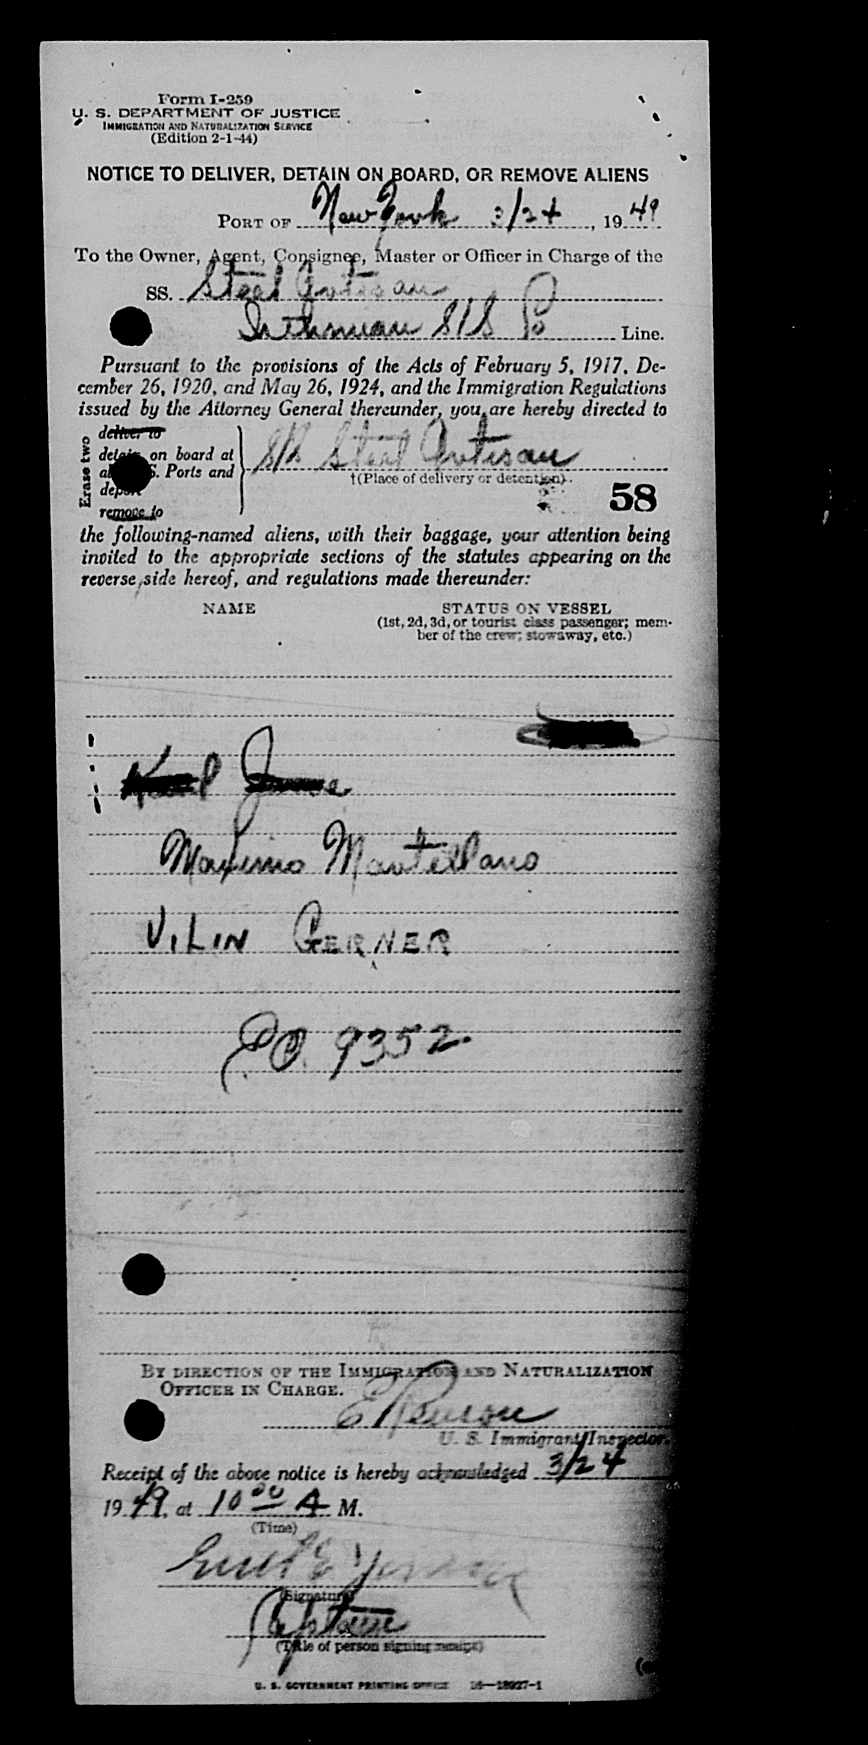 Form I-259
U. S. DEPARTMENT OF JUSTICE
IMMIGRATION AND NATURALIZATION SERVICE
(Edition 2-1-44)
NOTICE TO DELIVER, DETAIN ON BOARD, OR REMOVE ALIENS
PORT OF New York 3/24, 1949
To the Owner, Agent, Consignee, Master or Officer in Charge of the
SS. Steel Artisan
Isthmian S/S Line.
Pursuant to the provisions of the Acts of February 5, 1917, De-
cember 26, 1920, and May 26, 1924, and the Immigration Regulations
issued by the Attorney General thereunder, you are hereby directed to
Erase two
deliver to
detain on board at
all U. S. Ports and
deport
remove to
S/S Steel Artisan
†(Place of delivery or detention)
58
the following-named aliens, with their baggage, your attention being
invited to the appropriate sections of the statutes appearing on the
reverse side hereof, and regulations made thereunder:
NAME STATUS ON VESSEL
(1st, 2d, 3d, or tourist class passenger; mem-
ber of the crew; stowaway, etc.)
Maximo Mantellano
VILIN GERNER
P.O. 9352
BY DIRECTION OF THE IMMIGRATION AND NATURALIZATION
OFFICER IN CHARGE.
U. S. Immigrant Inspector.
Receipt of the above notice is hereby acknowledged 3/24
1949, at 10 00 A M.
(Time)
(Signature)
Captain
(Title of person signing receipt)
U. S. GOVERNMENT PRINTING OFFICE 16—18927-1